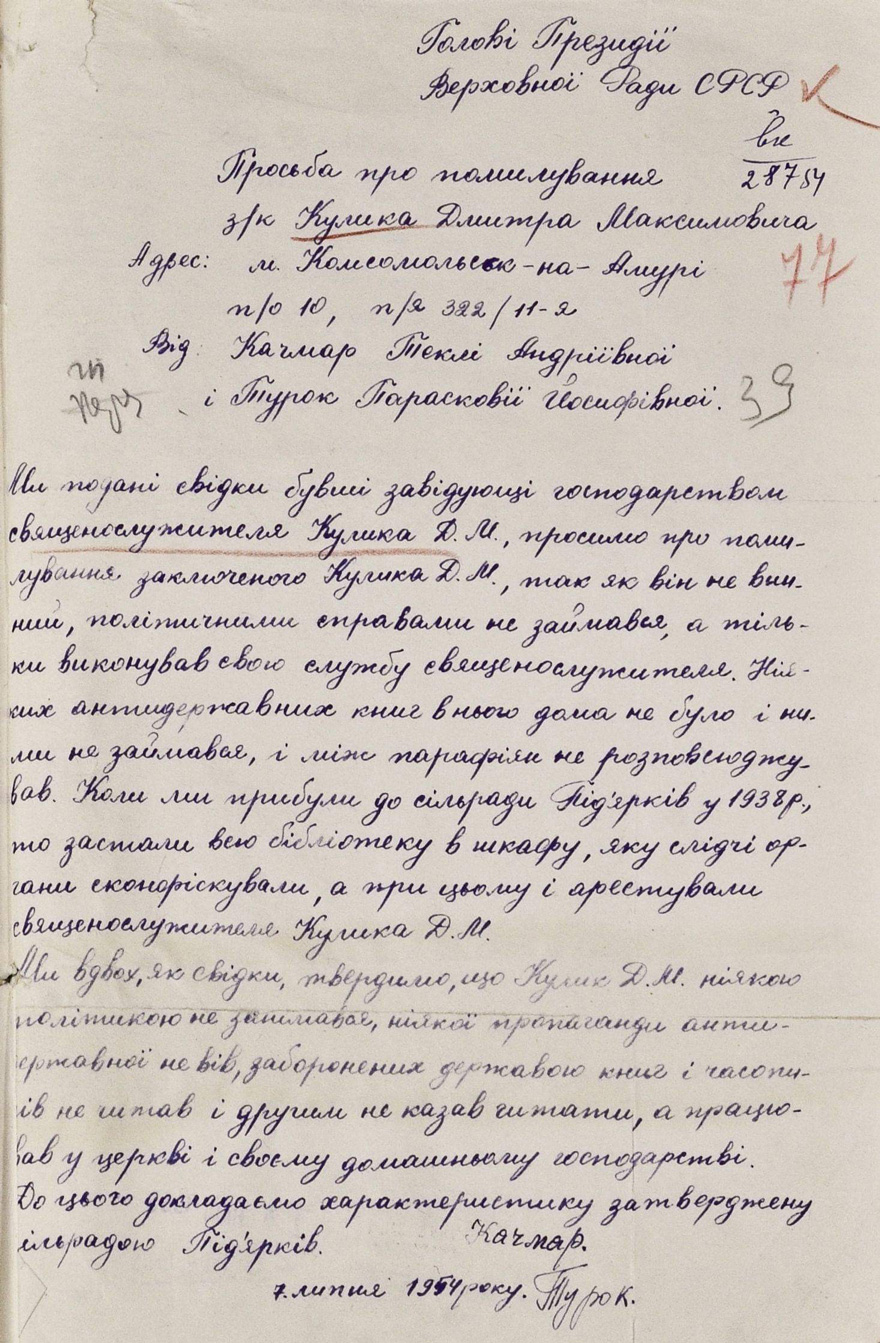 Голові Президії
Верховної Ради СРСР
вк
28754
Просьба про помилування
з/к Кулика Дмитра Максимовича
77
Адрес: м. Комсомольськ-на-Амурі
п/о 10, п/я 322/11-я
Від: Качмар Теклі Андріївної
і Турок Парасковії Йосифівної.
39
Ми подані свідки бувші завідующі господарством
священослужителя Кулика Д.М., просимо про поми-
лування заключеного Кулика Д.М., так як він не вин-
ний, політичними справами не займався, а тіль-
ки виконував свою службу священослужителя. Нія-
ких антидержавних книг в нього дома не було і ни-
ми не займався, і між парафіян не розповсюджу-
вав. Коли ми прибули до сільради Під'ярків у 1938 р.,
то застали всю бібліотеку в шкафу, яку слідчі ор-
гани сконфіскували, а при цьому і арестували
священослужителя Кулика Д.М.
Ми вдвох, як свідки, твердимо, що Кулик Д.М. ніякою
політикою не занімався, ніякої пропаганди анти-
ержавної не вів, заборонених державою книг і часопи-
ів не читав і другим не казав читати, а працю-
вав у церкві і своєму домашньому господарстві.
До цього докладаємо характеристику затверджену
ільрадою Під'ярків. Качмар.
7. липня 1954 року. Турок.